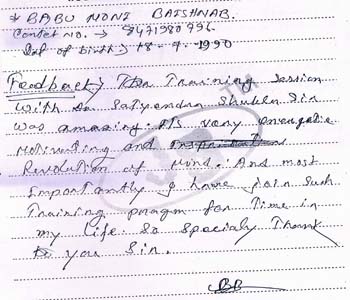 * BABU MONI BAISHNAB.
Contct NO. → 8471980796.
Dat of birth → 18-9-1990
Feedback → The Training Session
with Dr Satyendra Shukla Sir
was amazing. Its very energetic
Motivating and Inspiration
Revolution of Mind. And most
Importantly I have join such
Training progm for Time in
my life. So specialy Thank
to you Sir.
BB